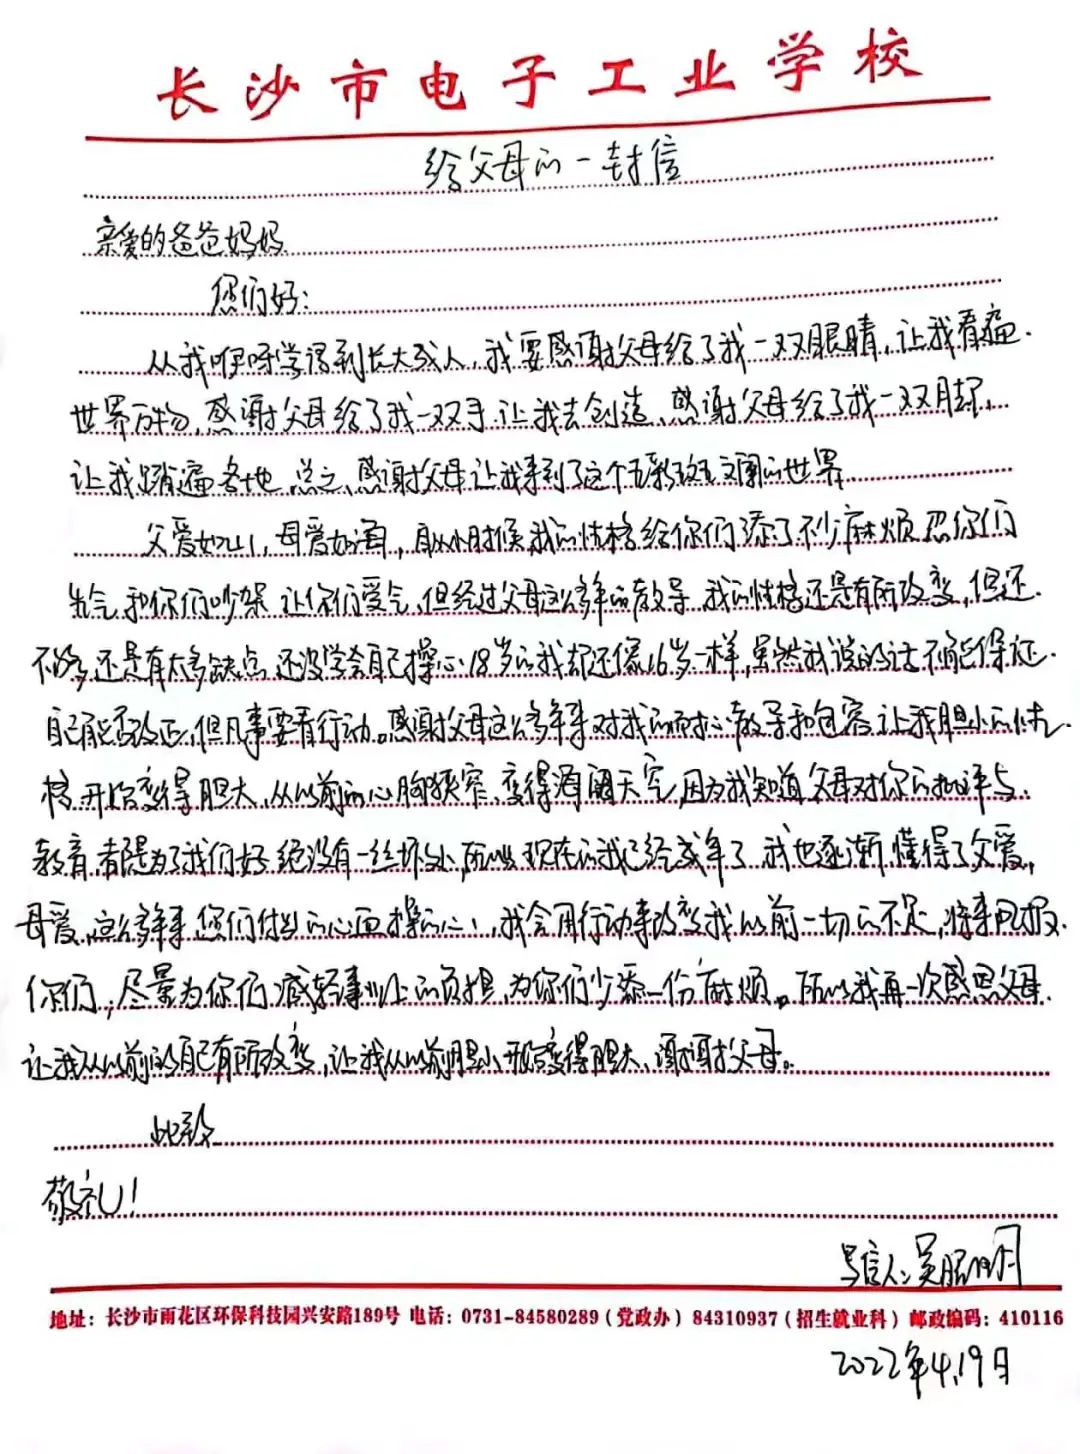 长沙市电子工业学校
给父母的一封信
亲爱的爸爸妈妈
您们好：
从我咿呀学语到长大成人，我要感谢父母给了我一双眼睛，让我看遍
世界万物，感谢父母给了我一双手，让我去创造，感谢父母给了我一双脚，
让我踏遍各地，总之，感谢父母让我来到了这个五彩斑斓的世界
父爱如山，母爱如海，从小时候我的性格给你们添了不少麻烦，忍你们
生气和你们吵架 让你们受气，但经过父母这么多年的教导 我的性格还是有所改变，但还
不够多 还是有太多缺点，还没学会自己操心，18岁的我却还像16岁一样，虽然我说的话不能保证
自己能否改正，但凡事要看行动。感谢父母这么多年来对我的耐心教导和包容 让我胆小的性
格开始变得胆大，从以前的心胸狭窄，变得海阔天空，因为我知道父母对你的批评与
教育，都是为了我们好 绝没有一丝坏处，所以 现在的我已经成年了 我也逐渐懂得了父爱，
母爱，这么多年来您们付出的心血操的心，我会用行动来改变我以前一切的不足，将来回报
你们，尽量为你们减轻事业上的负担，为你们少添一份麻烦。所以我再一次感恩父母
让我从以前的自己有所改变，让我从以前胆小 变得胆大，谢谢父母。
此致
敬礼！
写信人：吴
地址：长沙市雨花区环保科技园兴安路189号 电话：0731-84580289（党政办）84310937（招生就业科）邮政编码：410116
2022年4.19日